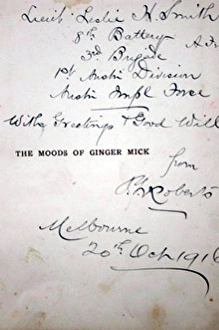 Lieut Leslie H. Smith
8th Battery
3rd Brigade
1st Austn Division
Austn Impl Force
With Greetings & Good Will
THE MOODS OF GINGER MICK
from
Roberts
Melbourne
20th Oct 1916